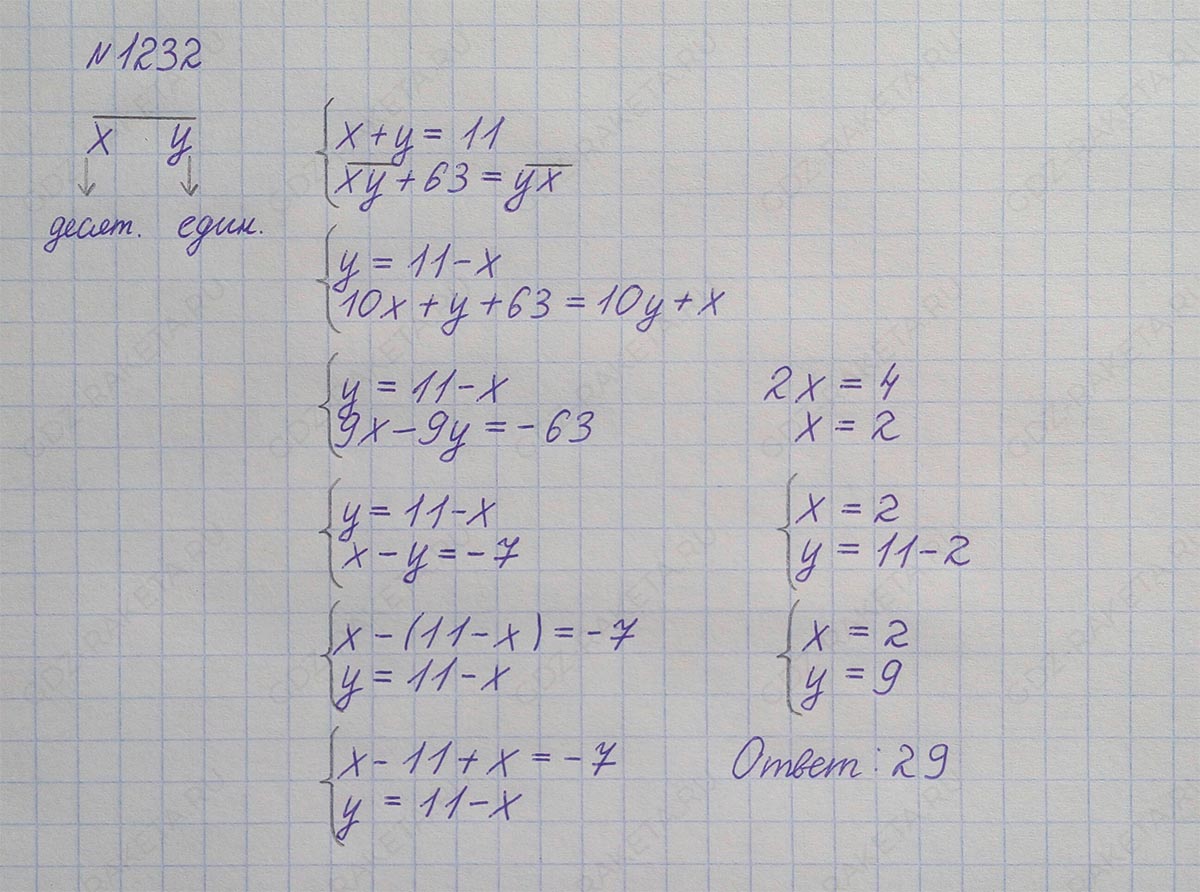 №1232
x y
десят. един.
x + y = 11
xy + 63 = yx
y = 11 - x
10x + y + 63 = 10y + x
y = 11 - x
9x - 9y = - 63
y = 11 - x
x - y = - 7
x - (11 - x) = - 7
y = 11 - x
x - 11 + x = - 7
y = 11 - x
2x = 4
x = 2
x = 2
y = 11 - 2
x = 2
y = 9
Ответ: 29
GDZ-RAKETA.RU